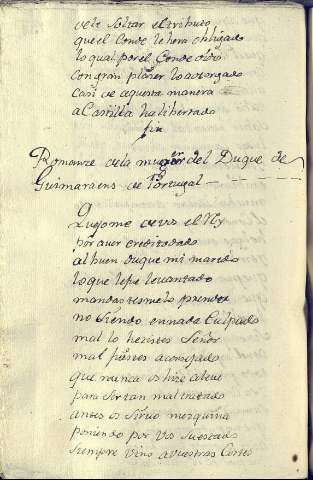 de le soltar el tributo
que el Conde le hera obligado
lo qual por el Conde oido
con gran plazer lo a otorgado
casi de aquesta manera
a Castilla ha libertado
fin
Romance de la muger del Duque de
Guimaraens de Portugal
Quejome de vos el Rey
por aver creditadado
al buen duque mi marido
lo que le fue levantado
mandastesmelo prender
no siendo en nada Culpado
mal lo hezistes Señor
mal fuistes aconsejado
que nunca os hizo aleve
para ser tan maltratado
antes os sirvio mezquina
poniendo por vos su estado
siempre vino a vuestras Cortes